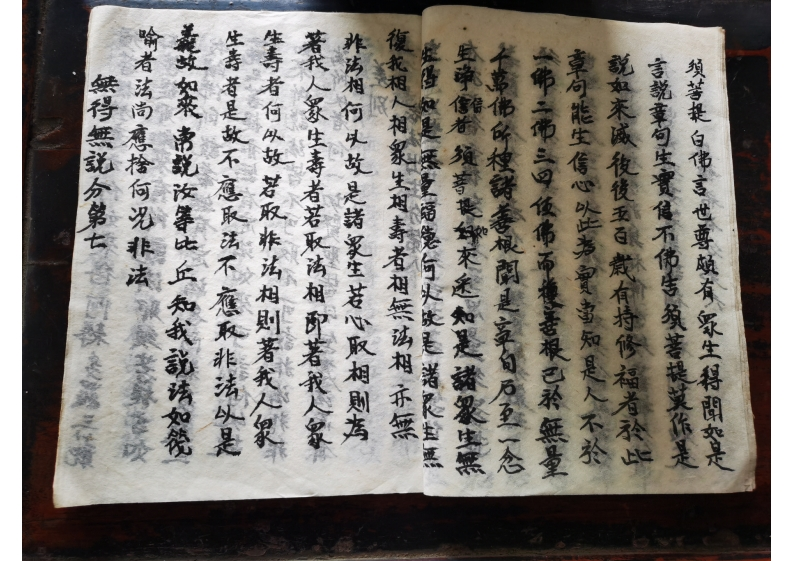 須菩提白佛言世尊頗有眾生得聞如是
言說章句生實信不佛告須菩提莫作是
說如來滅後後五百歲有持修福者於此
章句能生信心以此為實當知是人不於
一佛二佛三四伍佛而種善根已於無量
千萬佛所種諸善根聞是章句乃至一念
生淨信者須菩提如來悉知是諸眾生無
生得如是無量福德何以故是諸眾生無
復我相人相眾生相壽者相無法相亦無
非法相何以故是諸眾生若心取相則為
著我人眾生壽者若取法相即著我人眾
生壽者何以故若取非法相則著我人眾
生壽者是故不應取法不應取非法以是
義故如來常說汝等比丘知我說法如筏
喻者法尚應捨何況非法
無得無說分第七